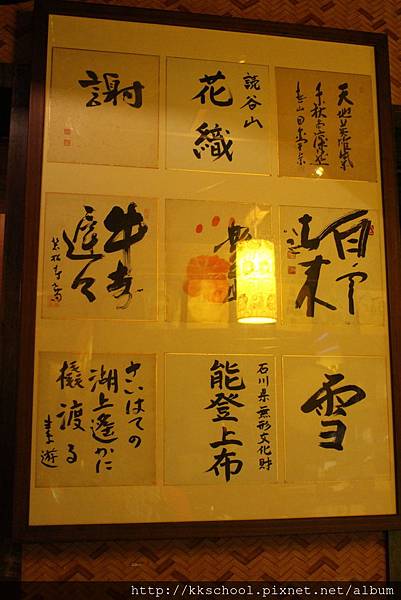 天地英雄氣
千秋尚凛然
読谷山
花織
謝
牛歩
遅々
雪
石川県無形文化財
能登上布
さいはての
湖上遙かに
橇渡る
素遊
http://kkschool.pixnet.net/album